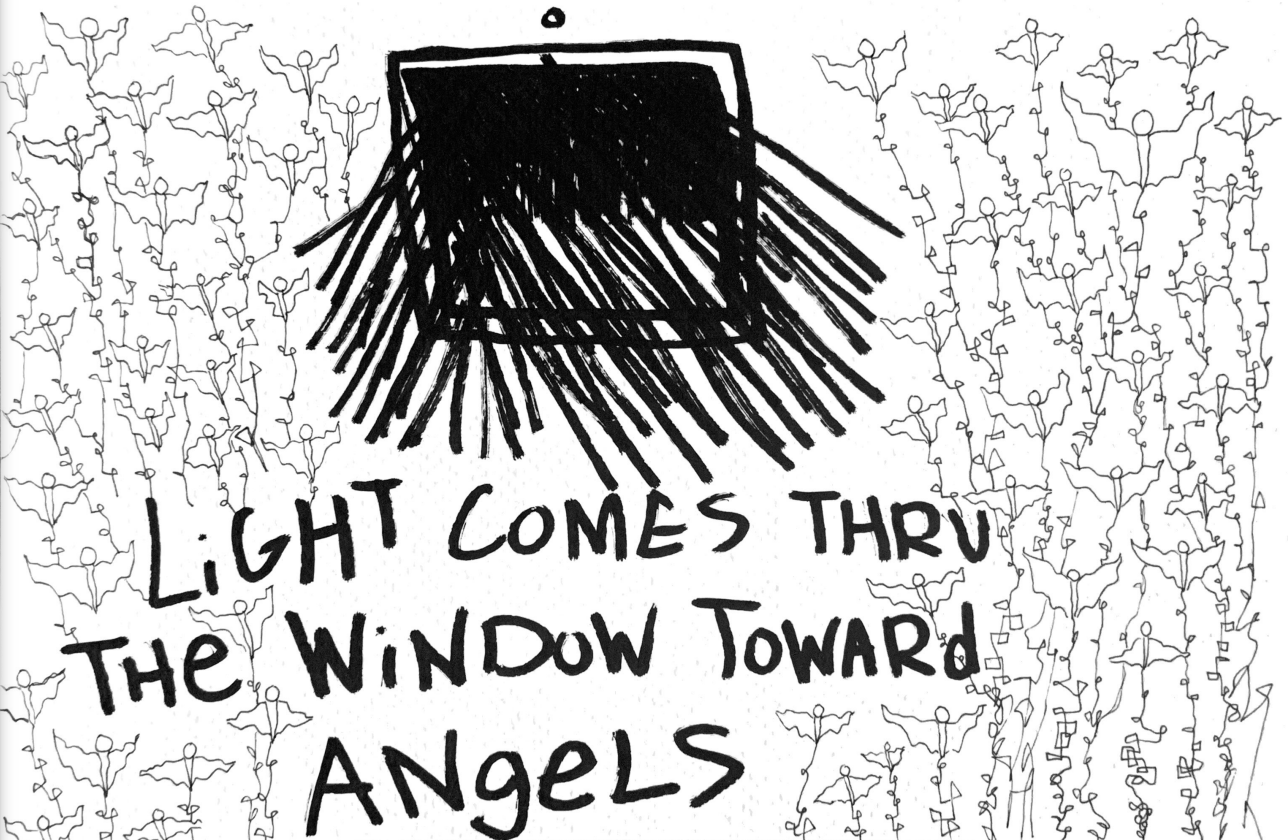 LiGHT COMES THRU
THe WiNDOW TOWARd
ANgeLS